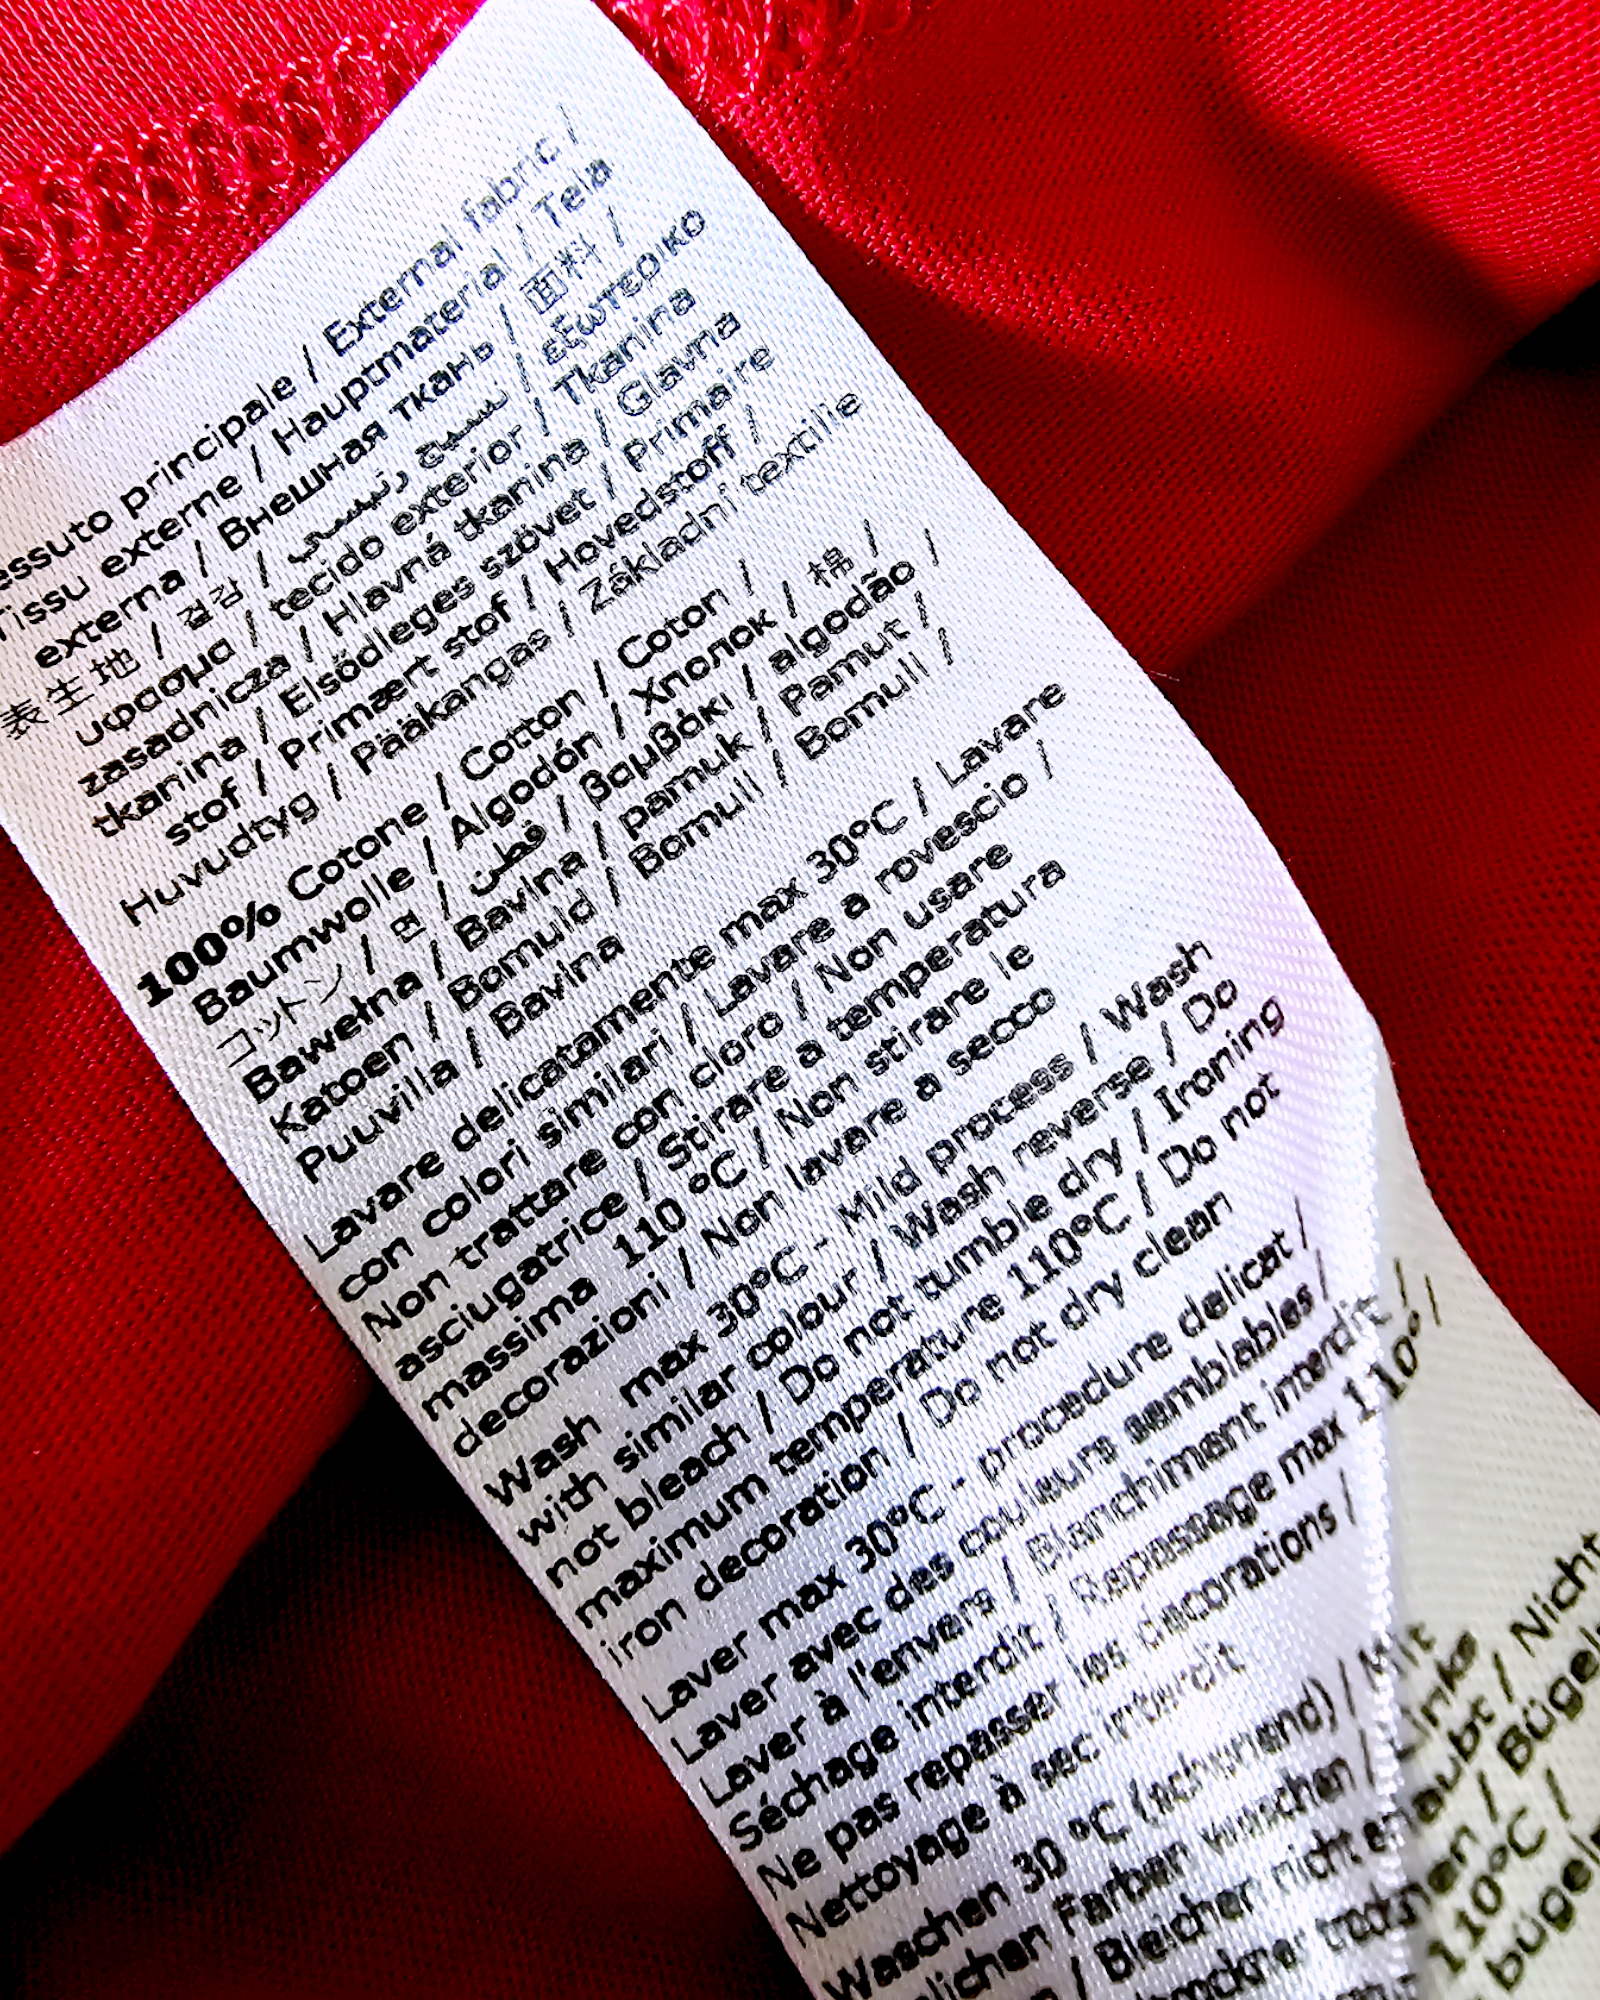 essuto principale / External fabric /
Tissu externe / Hauptmaterial / Tela
externa / Внешная ткань / 面料 /
表生地 / 겉감 / نسيج رئيسي / εξωτερικο
υφασμα / tecido exterior / Tkanina
zasadnicza / Hlavná tkanina / Glavna
tkanina / Elsődleges szövet / Primaire
stof / Primært stof / Hovedstoff /
Huvudtyg / Pääkangas / Základní textilie
100% Cotone / Cotton / Coton /
Baumwolle / Algodón / Хлопок / 棉 /
コットン / 면 / قطن / βαμβάκι / algodão /
Bawełna / Bavlna / pamuk / Pamut /
Katoen / Bomuld / Bomull / Bomull /
Puuvilla / Bavlna
Lavare delicatamente max 30°C / Lavare
con colori similari / Lavare a rovescio /
Non trattare con cloro / Non usare
asciugatrice / Stirare a temperatura
massima 110 °C / Non stirare le
decorazioni / Non lavare a secco
Wash max 30°C - Mild process / Wash
with similar colour / Wash reverse / Do
not bleach / Do not tumble dry / Ironing
maximum temperature 110°C / Do not
iron decoration / Do not dry clean
Laver max 30°C - procedure delicat /
Laver avec des couleurs semblables /
Laver à l'envers / Blanchiment interdit /
Séchage interdit / Repassage max 110° /
Ne pas repasser les decorations /
Nettoyage à sec interdit
Waschen 30 °C (schonend) / Mit
lichen Farben waschen / Linke
/ Bleichen nicht erlaubt / Nicht
trocknen / Bügel
110°C /
bügel